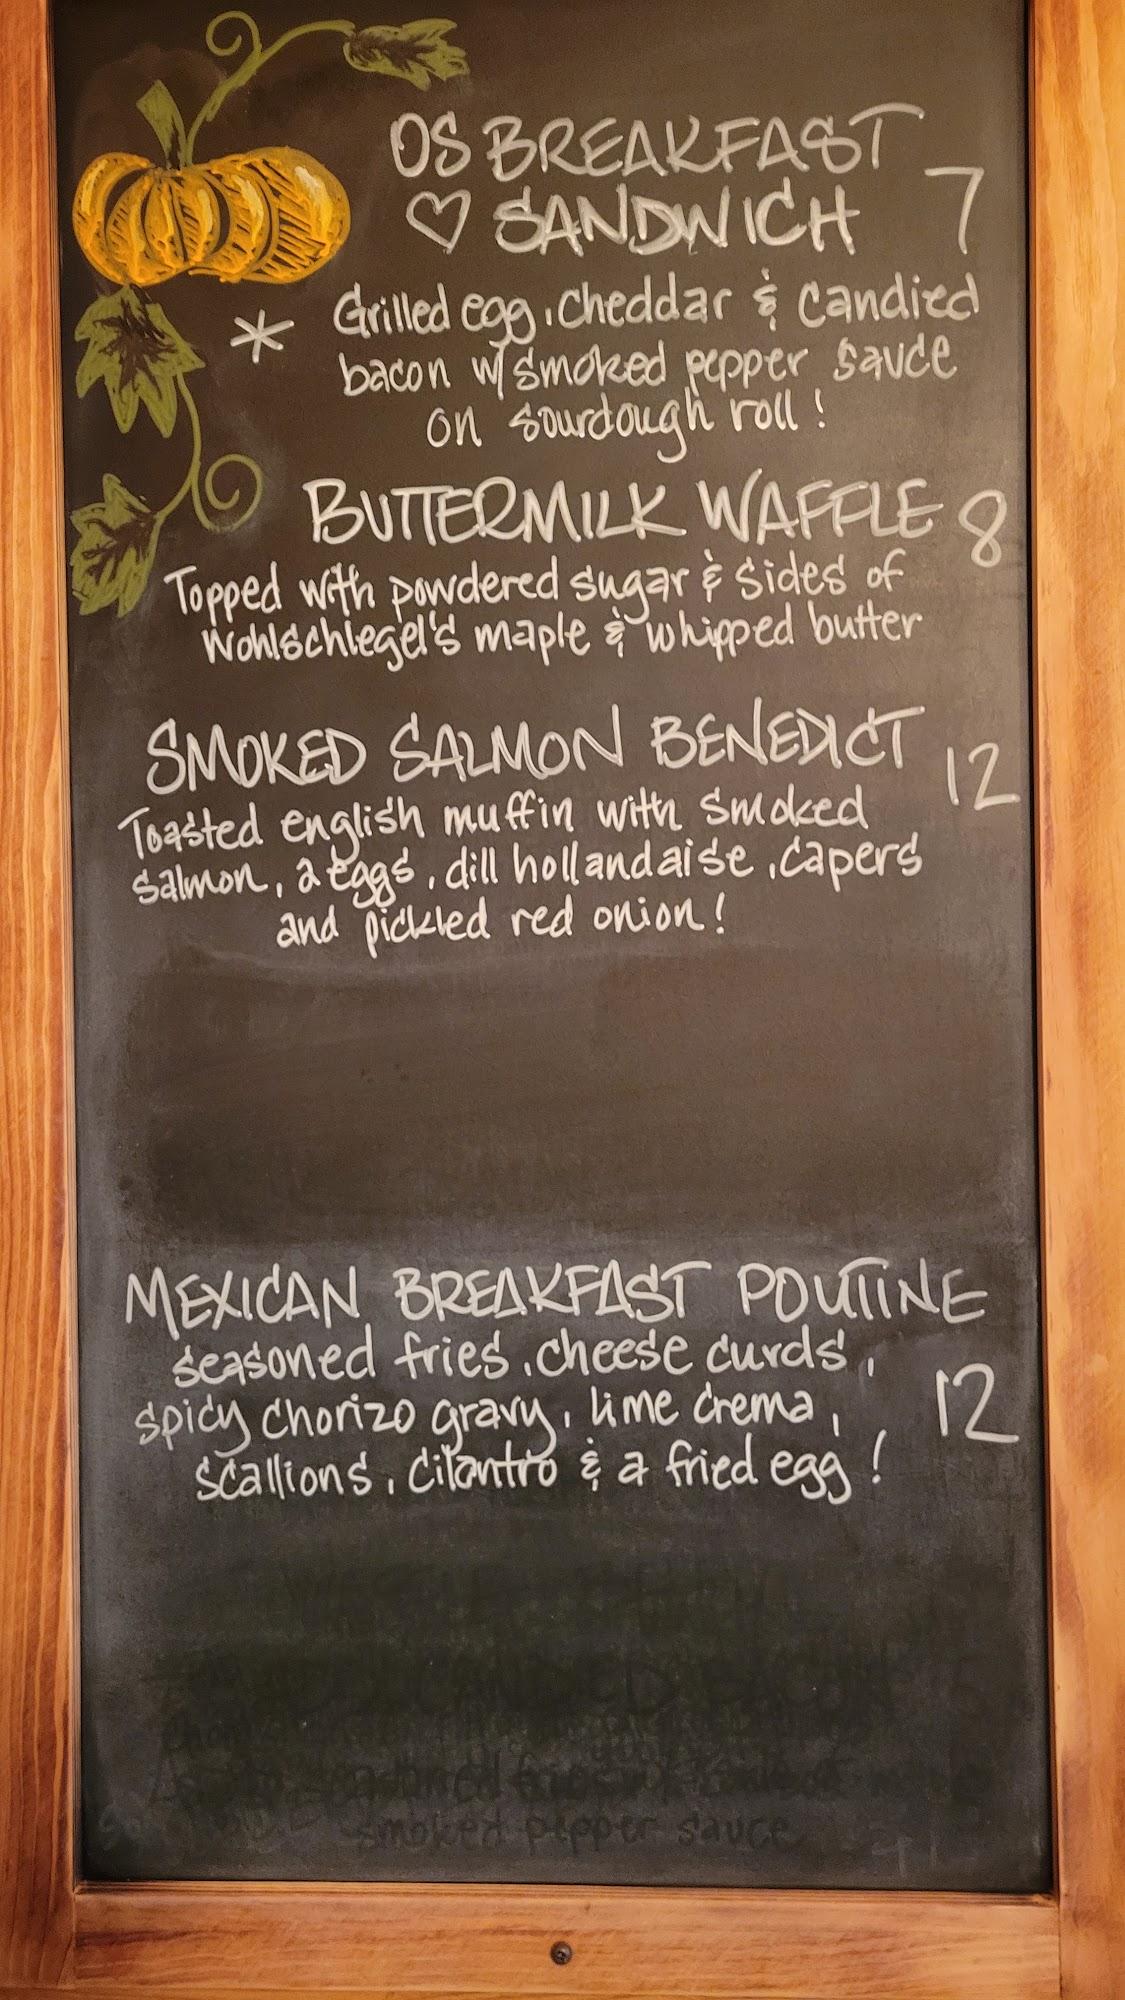 OS BREAKFAST
♡ SANDWICH 7
* Grilled egg, cheddar & candied
bacon w/ smoked pepper sauce
on sourdough roll!
BUTTERMILK WAFFLE 8
Topped with powdered sugar & sides of
Wohlschlegel's maple & whipped butter
SMOKED SALMON BENEDICT 12
Toasted english muffin with smoked
salmon, 2 eggs, dill hollandaise, capers
and pickled red onion!
MEXICAN BREAKFAST POUTINE
seasoned fries, cheese curds,
spicy chorizo gravy, lime crema, 12
scallions, cilantro & a fried egg!
CANDIED BACON
smoked pepper sauce